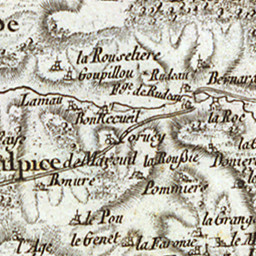 la Rouseliere
Goupillou
Rudeau
Bernard
Fg. de Rudeau
Lamau
Bon Recueil
la Roë
Coruey
ulpice de Mareuil
la Rousie
Bonure
Pommiers
le Pou
la Grang
le Genet
la Faronie
le M
l'Age